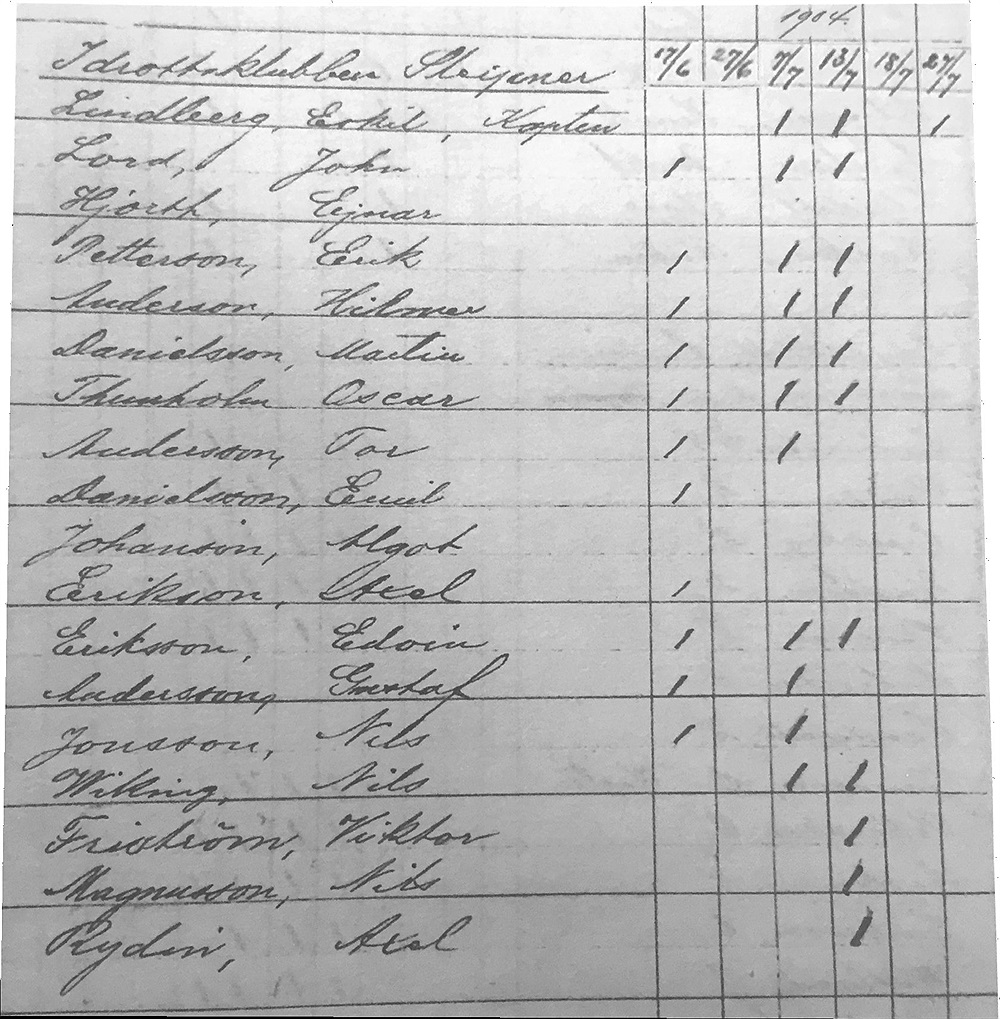 1904.
Idrottsklubben Sleipner 17/6 27/6 7/7 13/7 18/7 27/7
Lindberg, Eskil, Kapten 1 1 1
Lord, John 1 1 1
Hjorth, Ejnar
Petterson, Erik 1 1 1
Anderson, Hilmer 1 1 1
Danielsson, Martin 1 1 1
Thunholm Oscar 1 1 1
Andersson, Tor 1 1
Danielsson, Emil 1
Johanson, Algot
Erikson, Axel 1
Eriksson, Edvin 1 1 1
Andersson, Gustaf 1 1
Jonsson, Nils 1 1
Wiking, Nils 1 1
Friström, Viktor 1
Magnusson, Nils 1
Rydin, Axel 1